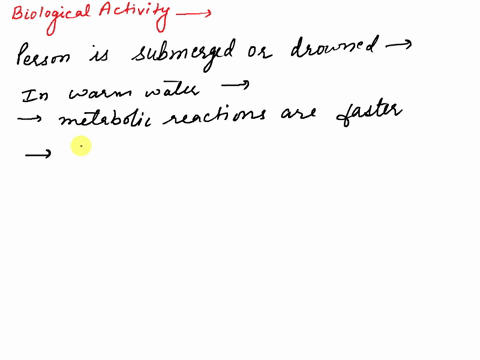 Biological Activity →
Person is submerged or drowned →
In warm water →
→ metabolic reactions are faster
→